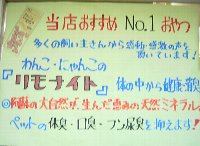 当店おすすめ No.1 おやつ
多くの飼い主さんから感動・感激の声を
頂いています!
わんこ・にゃんこの
『リモナイト』 体の中から健康・消臭
の大自然が、生んだ恵みの天然ミネラル。
ペットの体臭・口臭・フン尿臭を抑えます!